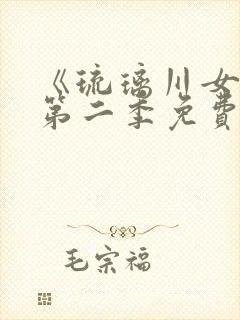 《琉璃川女
第二季免費
毛宗福